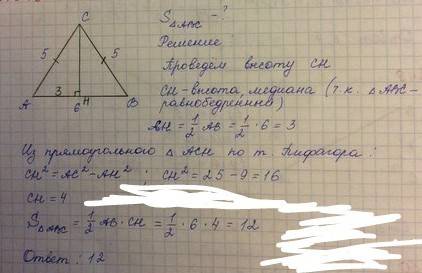 C
5 5
3
A 6 H B
S△ABC - ?
Решение:
Проведём высоту CH
CH - высота, медиана (т.к. △ABC - равнобедренный)
AH = 1/2 AB = 1/2 · 6 = 3
Из прямоугольного △ ACH по т. Пифагора:
CH² = AC² - AH² ; CH² = 25 - 9 = 16
CH = 4
S△ABC = 1/2 AB · CH = 1/2 · 6 · 4 = 12
Ответ: 12